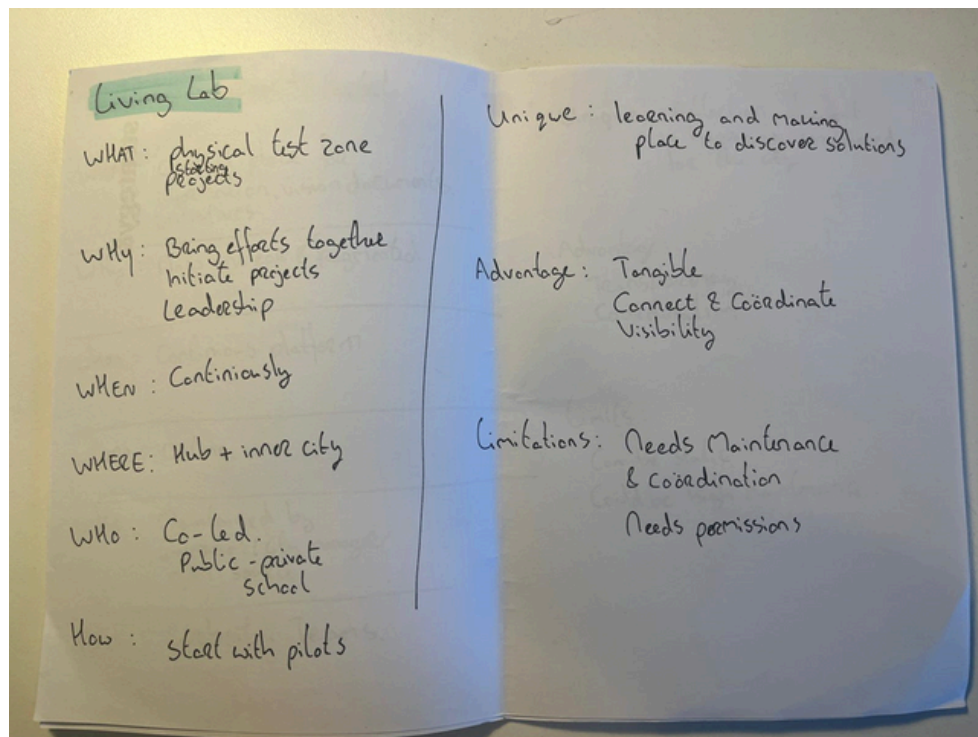 Living Lab
WHAT: physical test zone
starting
projects
WHY: Bring efforts together
Initiate projects
Leadership
WHEN: Continiously
WHERE: Hub + inner city
WHO: Co-led.
Public-private
school
How: Start with pilots
Unique: learning and making
place to discover solutions
Advantage: Tangible
Connect & Coördinate
Visibility
Limitations: Needs Maintenance
& coördination
Needs permissions